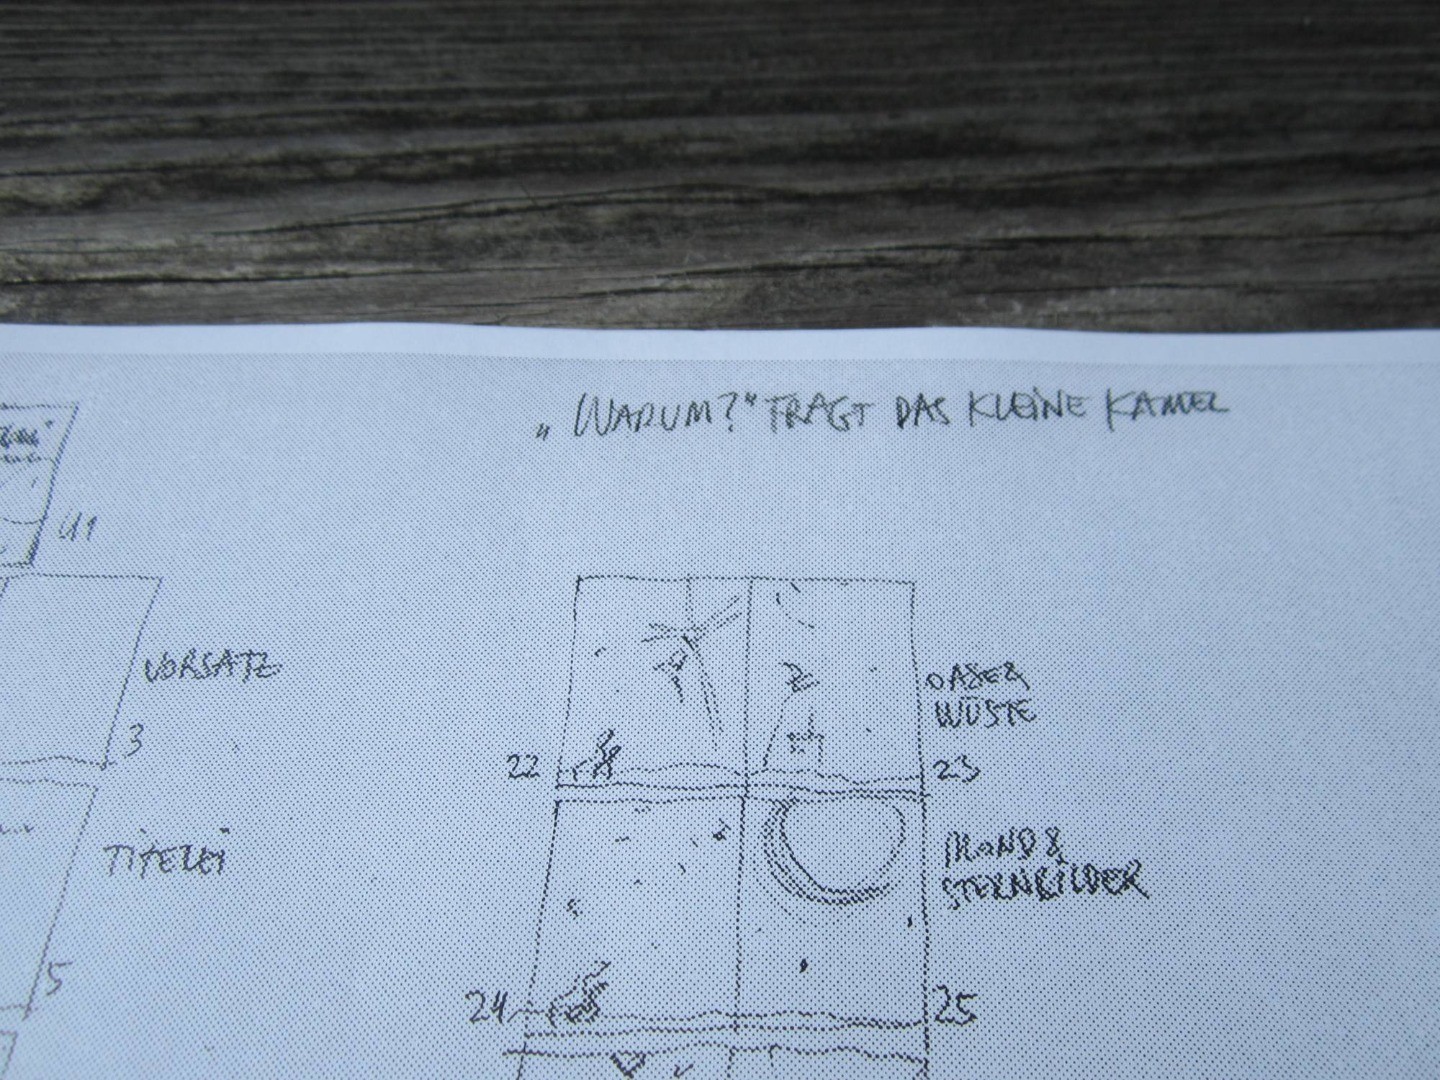 „WARUM?“ TRAGT DAS KLEINE KAMEL
U1
VORSATZ
3
TITELEI
5
OASE &
WÜSTE
22
23
MOND &
STERNBILDER
24
25